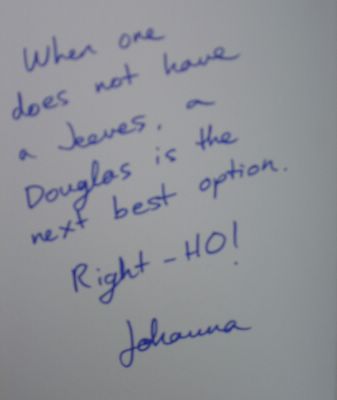 When one
does not have
a Jeeves, a
Douglas is the
next best option.
Right-HO!
Johanna